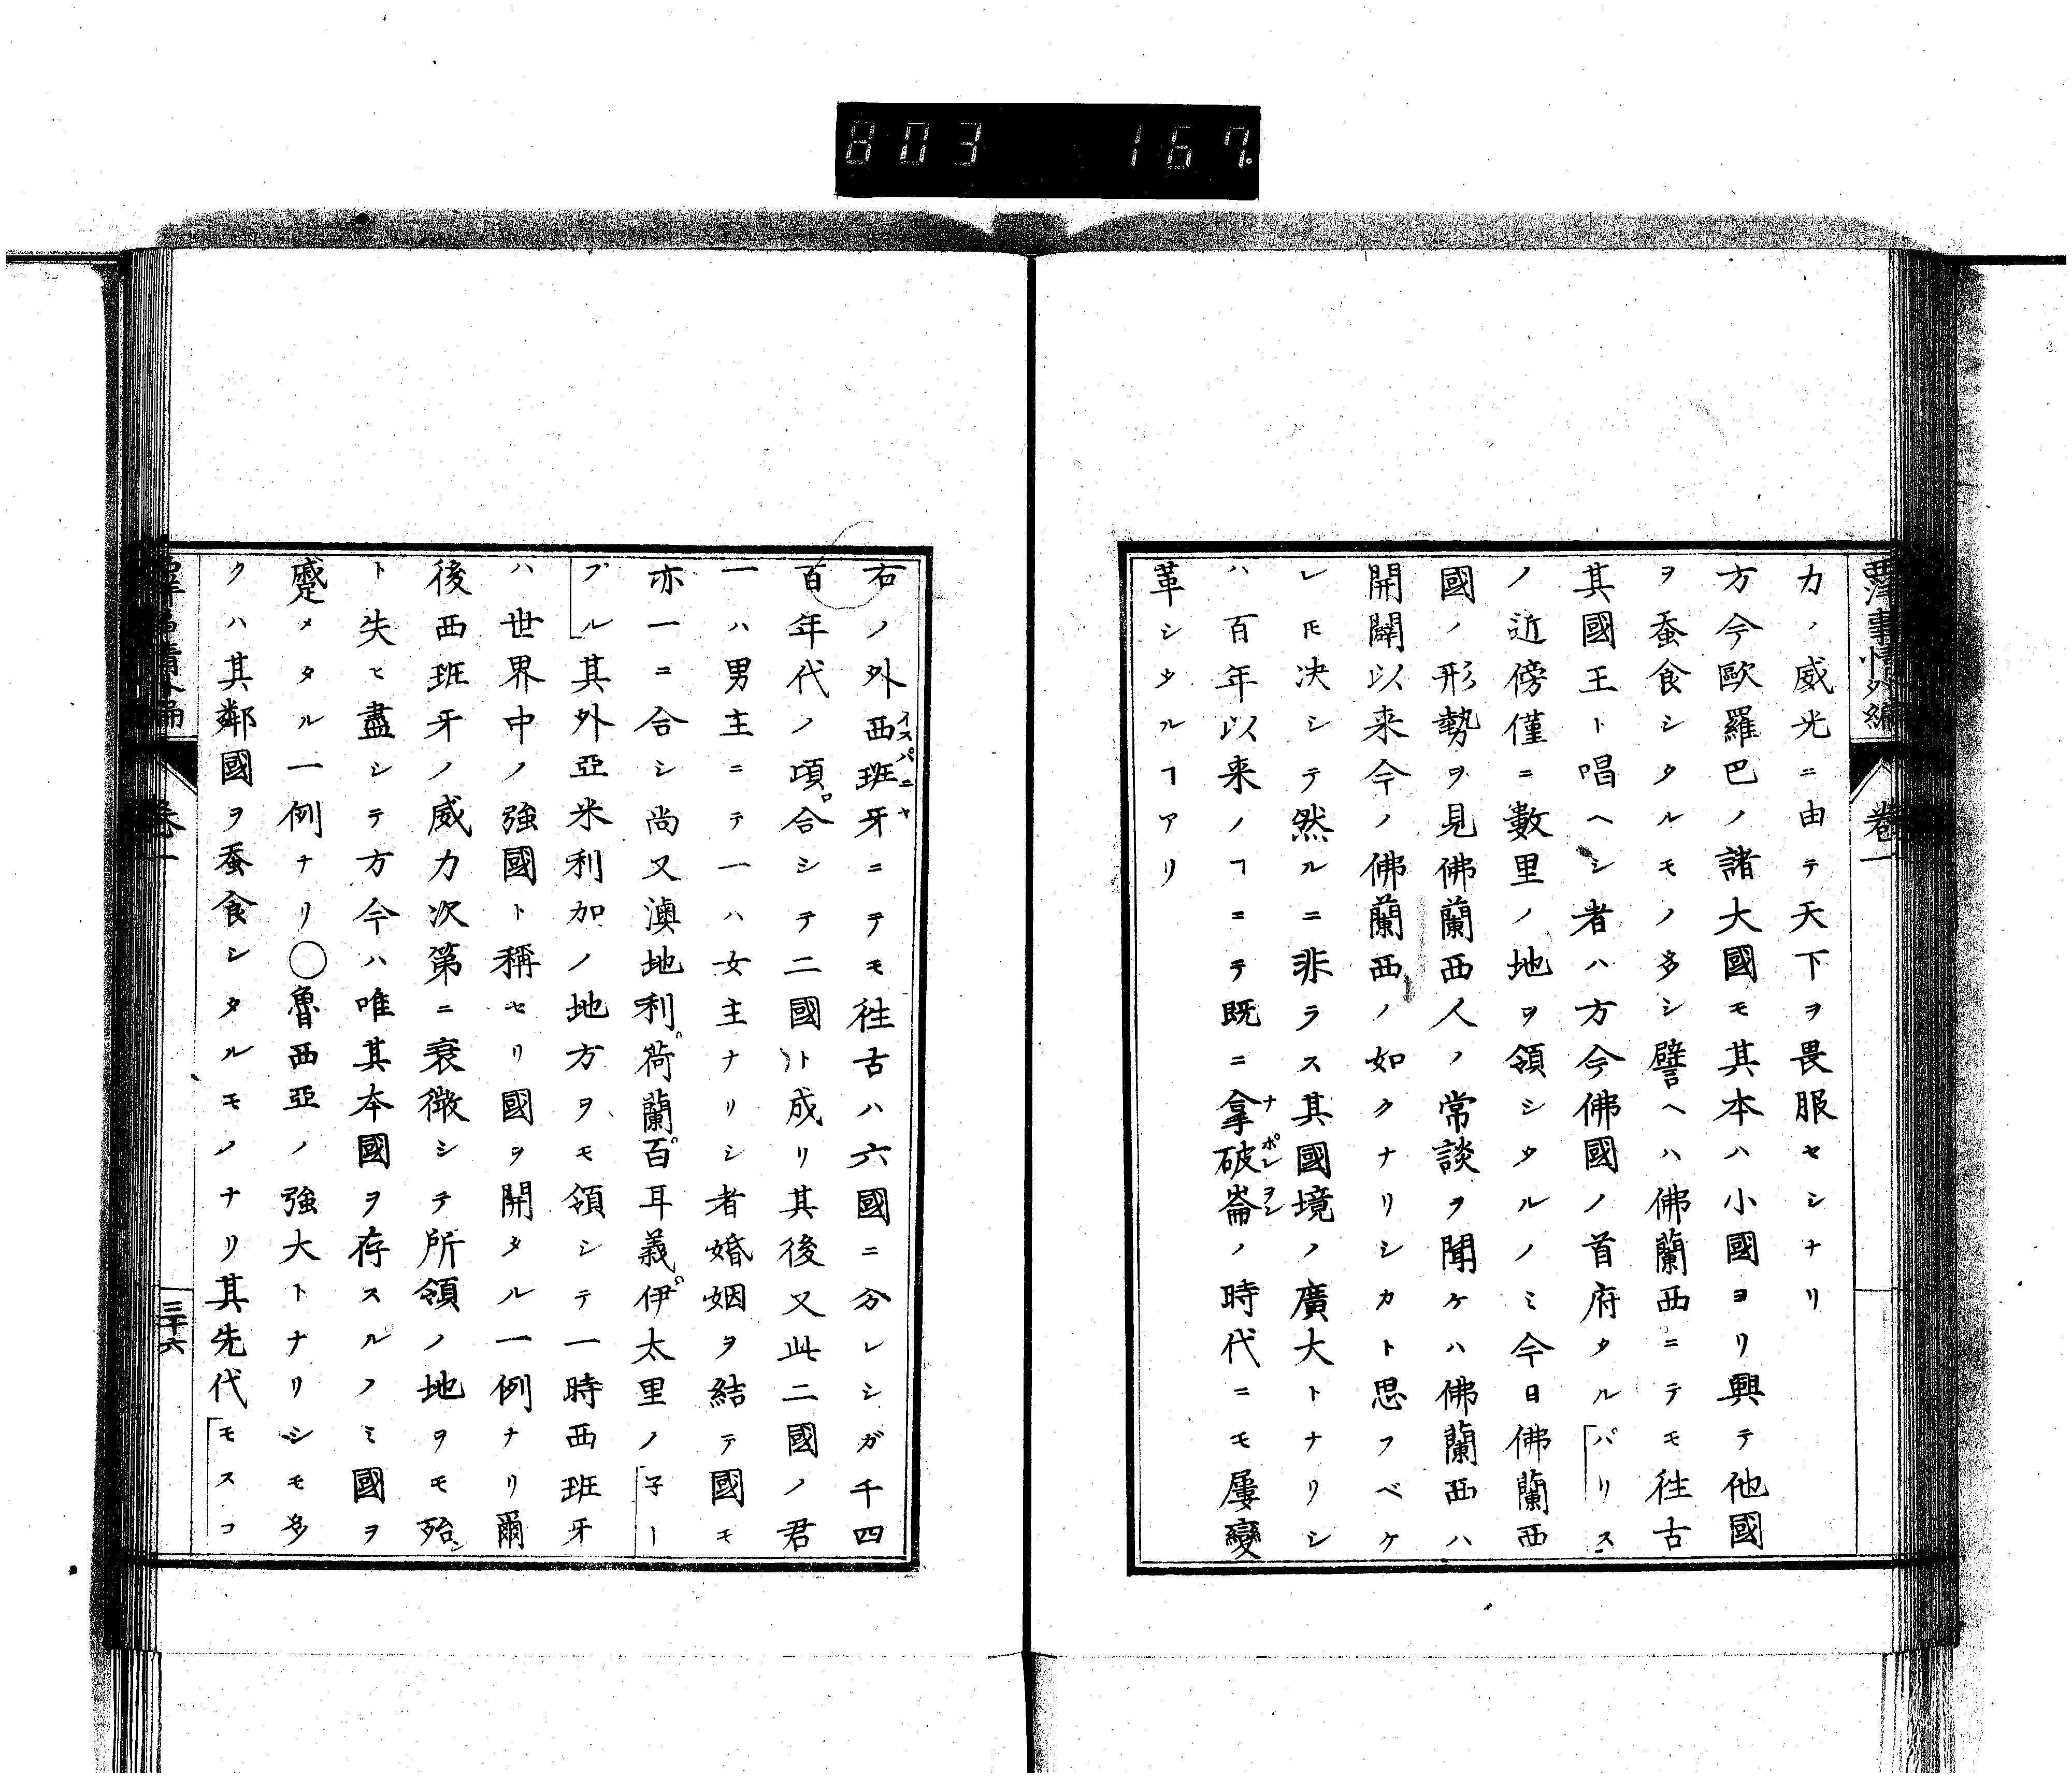 803 167.
西洋事情外編 卷一
カノ威光ニ由テ天下ヲ畏服セシナリ
方今歐羅巴ノ諸大國モ其本ハ小國ヨリ興テ他國
ヲ蚕食シタルモノ多シ譬ヘハ佛蘭西ニテモ往古
其國王ト唱ヘシ者ハ方今佛國ノ首府タル「パリス
ノ近傍僅ニ數里ノ地ヲ領シタルノミ今日佛蘭西
國ノ形勢ヲ見佛蘭西人ノ常談ヲ聞ケハ佛蘭西ハ
開闢以来今ノ佛蘭西ノ如クナリシカト思フベケ
レ𪜈决シテ然ルニ非ラス其國境ノ廣大トナリシ
ハ百年以来ノヿニテ既ニ拿破崙ノ時代ニモ屢變
ナポレヲン
革シタルヿアリ
右ノ外西班牙ニテモ往古ハ六國ニ分レシガ千四
イスパニヤ
百年代ノ頃合シテ二國ト成リ其後又此二國ノ君
一ハ男主ニテ一ハ女主ナリシ者婚姻ヲ結テ國モ
亦一ニ合シ尚又澳地利荷蘭百耳義伊太里ノ「子ー
プル」其外亞米利加ノ地方ヲモ領シテ一時西班牙
ハ世界中ノ強國ト稱セリ國ヲ開タル一例ナリ爾
後西班牙ノ威力次第ニ衰微シテ所領ノ地ヲモ殆ン
ト失ヒ盡シテ方今ハ唯其本國ヲ存スルノミ國ヲ
蹙メタル一例ナリ○魯西亞ノ強大トナリシモ多
クハ其鄰國ヲ蚕食シタルモノナリ其先代「モスコ
卷一
三十六